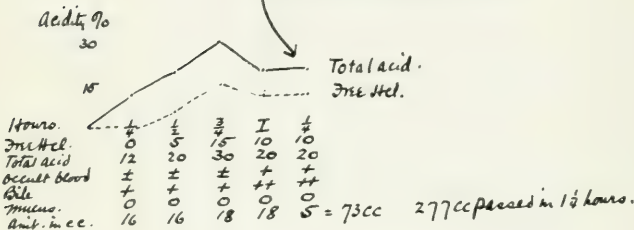 Acidity %
30
Total acid.
15
Free Hcl.
Hours. 1/4 1/2 3/4 I 1/4
Free Hcl. 0 5 15 10 10
Total acid 12 20 30 20 20
occult blood ± ± ± + +
Bile + + + ++ ++
Mucus. 0 0 0 0 0
Amt. in c.c. 16 16 18 18 5 = 73cc 277cc passed in 1¼ hours.